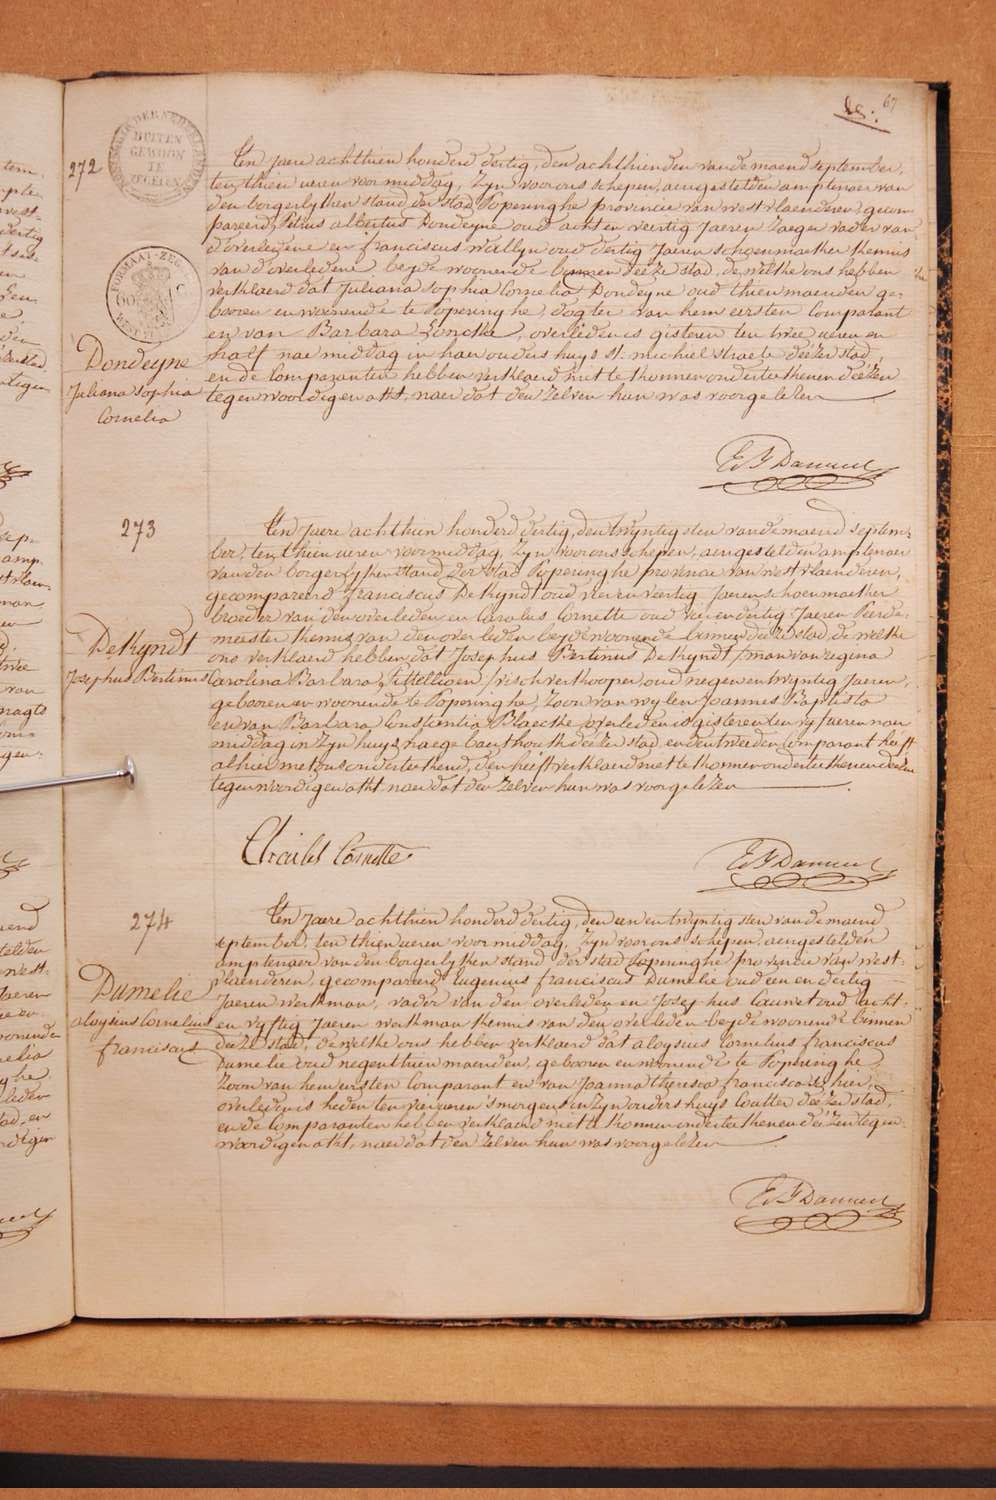 67
272
KONINGRYK DER NEDERLANDEN
BUITEN
GEWOON
TE
ZEGELEN
FORMAAT-ZEGEL
WEST
Dondeyne
Juliana Sophia
Cornelia
Ten jaere achthien honderd dertig, den achthienden van de maend september,
ten thien ueren voormiddag, Zyn voor ons schepen, aengestelden amptenaer van
den borgerlyken stand der stad Poperinghe provincie van westvlaenderen, gecom-
pareerd Petrus albertus Dondeyne oud acht en veertig Jaeren Zaeger vader van
d'overledene en franciscus Wallyn oud dertig Jaeren schoenmaeker kennis
van d'overledene, beyde woonende binnen deeze stad, de welke ons hebben
verklaerd dat Juliana Sophia Cornelia Dondeyne oud thien maenden ge-
booren en woonende te Poperinghe, dogter van hem eersten Comparant
en van Barbara Loncke, overleden is gisteren ten twee ueren en
half nae middag in haer ouders huys St. michiel straete deezer stad,
en de Comparanten hebben verklaerd niet te konnen onderteekenen deezen
tegenwoordigen akt, naer dat den zelven hun was voorgelezen
273
DeKyndt
Josephus Bertinus
Ten Jaere achthien honderd dertig, den twyntigsten van de maend septem-
ber, ten thien ueren voormiddag, Zyn voor ons schepen, aengestelden amptenaer
van den borgerlyken stand der stad Poperinghe provincie van westvlaenderen,
gecompareerd franciscus DeKyndt oud vier en veertig Jaeren schoenmaeker
broeder van den overleden en Carolus Cornette oud vier en dertig Jaeren Peerde-
meester kennis van den overleden beyde woonende binnen deeze stad, de welke
ons verklaerd hebben dat Josephus Bertinus DeKyndt / man van regina
Carolina Barbara / vischverkooper, oud negen en twyntig Jaeren,
gebooren en woonende te Poperinghe, Zoon van wylen Joannes Baptista
en van Barbara Constantia Blaecke overleden is gisteren ten vyf ueren naer
middag in Zyn huys, deezer stad, en den tweeden Comparant heeft
alhier met ons onderteekend, den heeft verklaerd niet te konnen onderteekenen deezen
tegenwoordigen akt naer dat den Zelven hun was voorgelezen
Charles Cornette
274
Dumelie
aloysius Cornelius
franciscus
Ten Jaere achthien honderd dertig, den een en twyntigsten van de maend
september, ten thien ueren voormiddag, Zyn voor ons schepen, aengestelden
amptenaer van den borgerlyken stand der stad Poperinghe provincie van west-
vlaenderen, gecompareerd Eugenius franciscus Dumelie oud een en dertig
Jaeren werkman, vader van den overleden en Josephus Cauwet oud acht-
en vyftig Jaeren werkman kennis van den overleden beyde woonende binnen
deeze stad, de welke ons hebben verklaerd dat aloysius Cornelius franciscus
Dumelie oud negenthien maenden, gebooren en woonende te Poperinghe,
Zoon van hem eersten Comparant en van Joanna theresia francisca
overleden is heden ten vier ueren 's morgens in Zyn ouders huys deezer stad,
en de Comparanten hebben verklaerd niet te konnen onderteekenen deezen tegen-
woordigen akt, naer dat den Zelven hun was voorgelezen